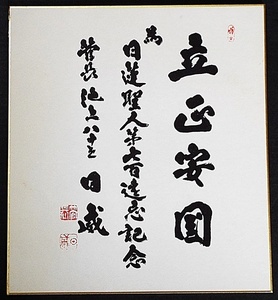 立正安国
為
日蓮聖人第七百遠忌記念
池上八十世
日威